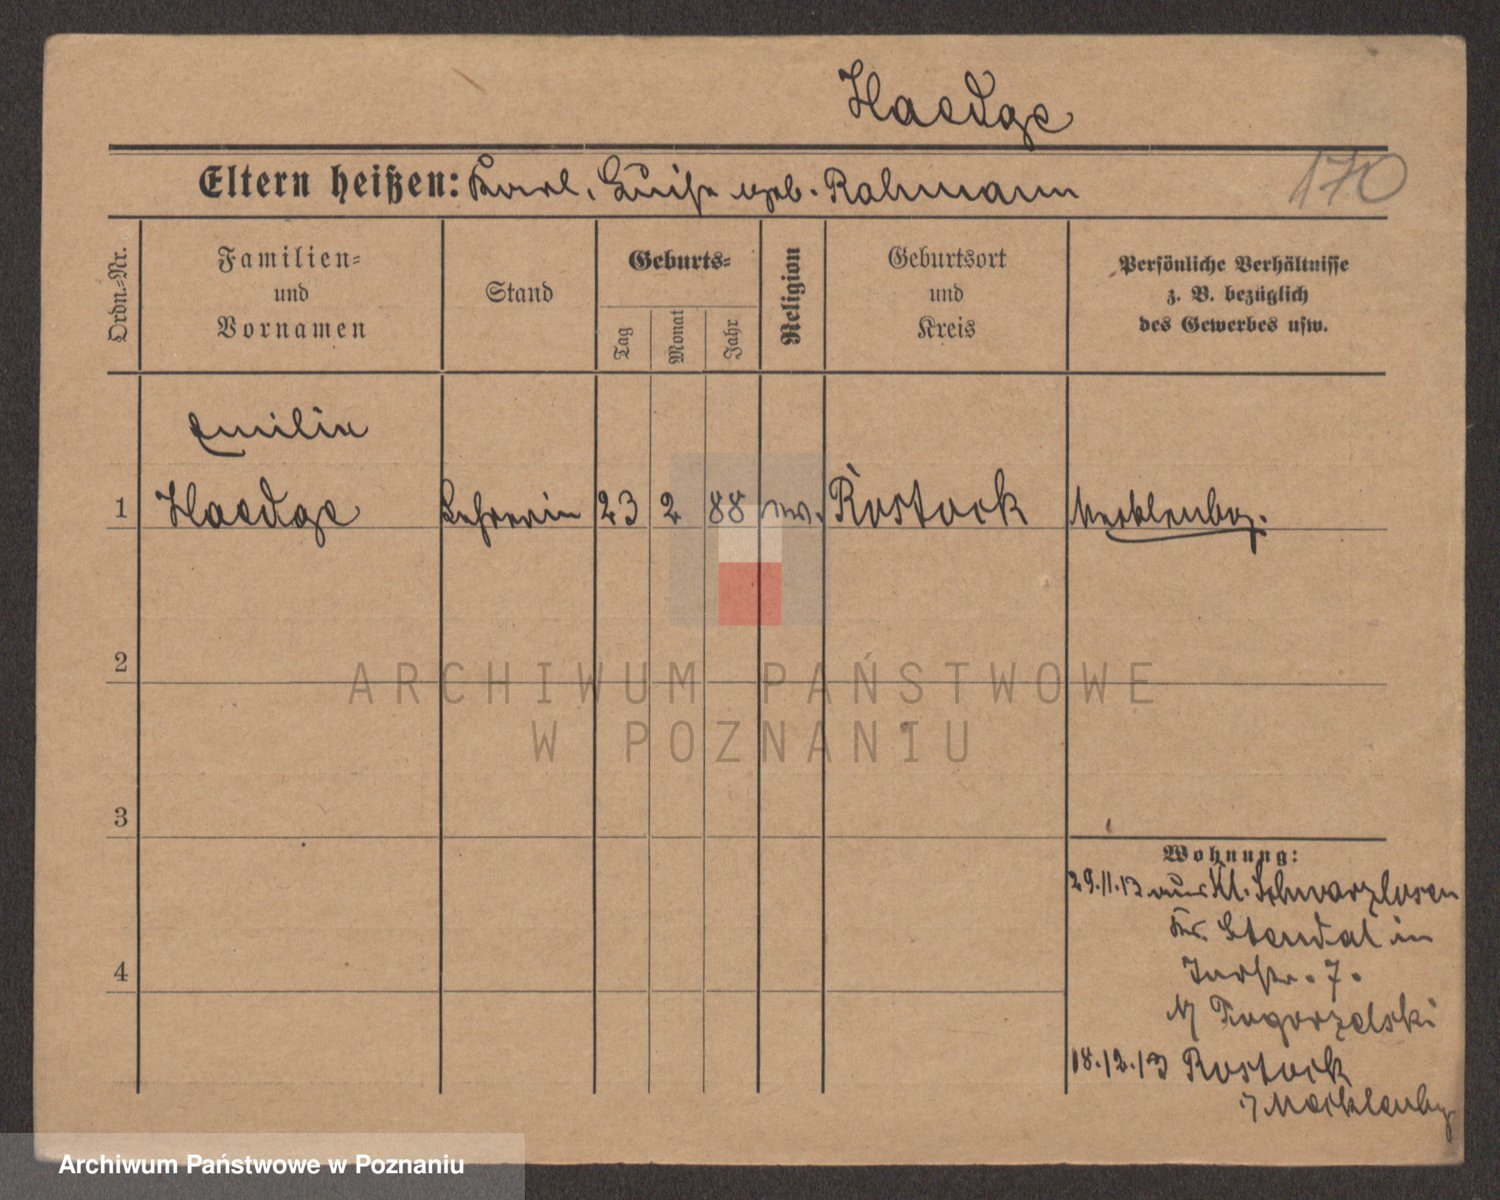 Haedge
Eltern heißen: Karl, Luise geb. Rahmann
170
Ordn.-Nr.
Familien-
und
Vornamen
Stand
Geburts-
Tag
Monat
Jahr
Religion
Geburtsort
und
Kreis
Persönliche Verhältnisse
z. B. bezüglich
des Gewerbes usw.
Emilie
1 Haedge Lehrerin 23 2 88 ev. Rostock Mecklenbg.
2
3
4
Wohnung:
29.11.13 aus Kl. Schwarzlosen
Kr. Stendal in
7.
Pogorzelski
18.12.13 Rostock
i/ Mecklenbg
ARCHIWUM PAŃSTWOWE
W POZNANIU
Archiwum Państwowe w Poznaniu